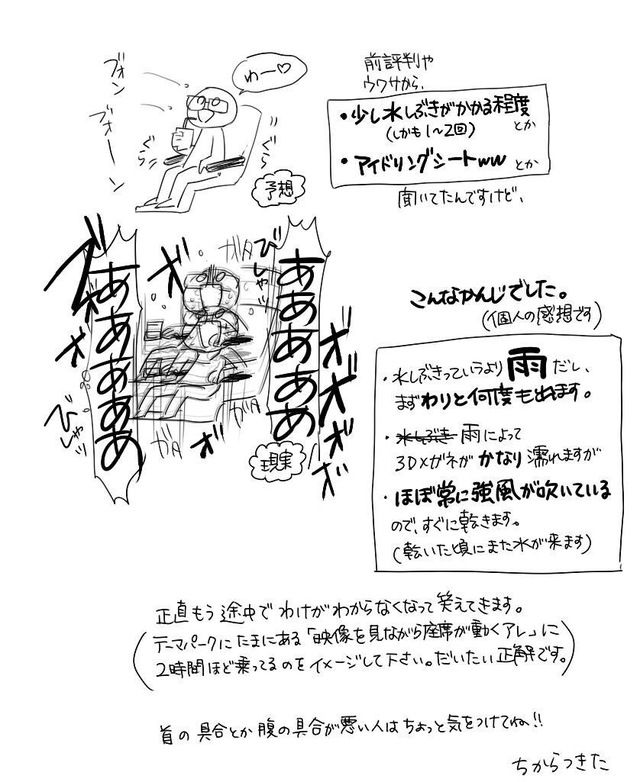 前評判や
ウワサから、
・少し水しぶきがかかる程度
(しかも1〜2回)
とか
・アイドリングシートww とか
聞いてたんですけど、
わー♡
ブォン
ブォーン
ぐら
ぐら
予想
こんなかんじでした。
(個人の感想です)
・水しぶきっていうより雨だし、
まずわりと何度も出ます。
・水しぶき雨によって
3Dメガネがかなり濡れますが
・ほぼ常に強風が吹いている
ので、すぐに乾きます。
(乾いた頃にまた水が来ます)
ああああああ
ああああああ
びしゃッ
びしゃッ
ガタ
ガタ
ガタ
現実
正直もう途中でわけがわからなくなって笑えてきます。
(テーマパークにたまにある「映像を見ながら座席が動くアレ」に
2時間ほど乗ってるのをイメージして下さい。だいたい正解です。)
首の具合とか腹の具合が悪い人はちょっと気をつけてね!!
ちからつきた